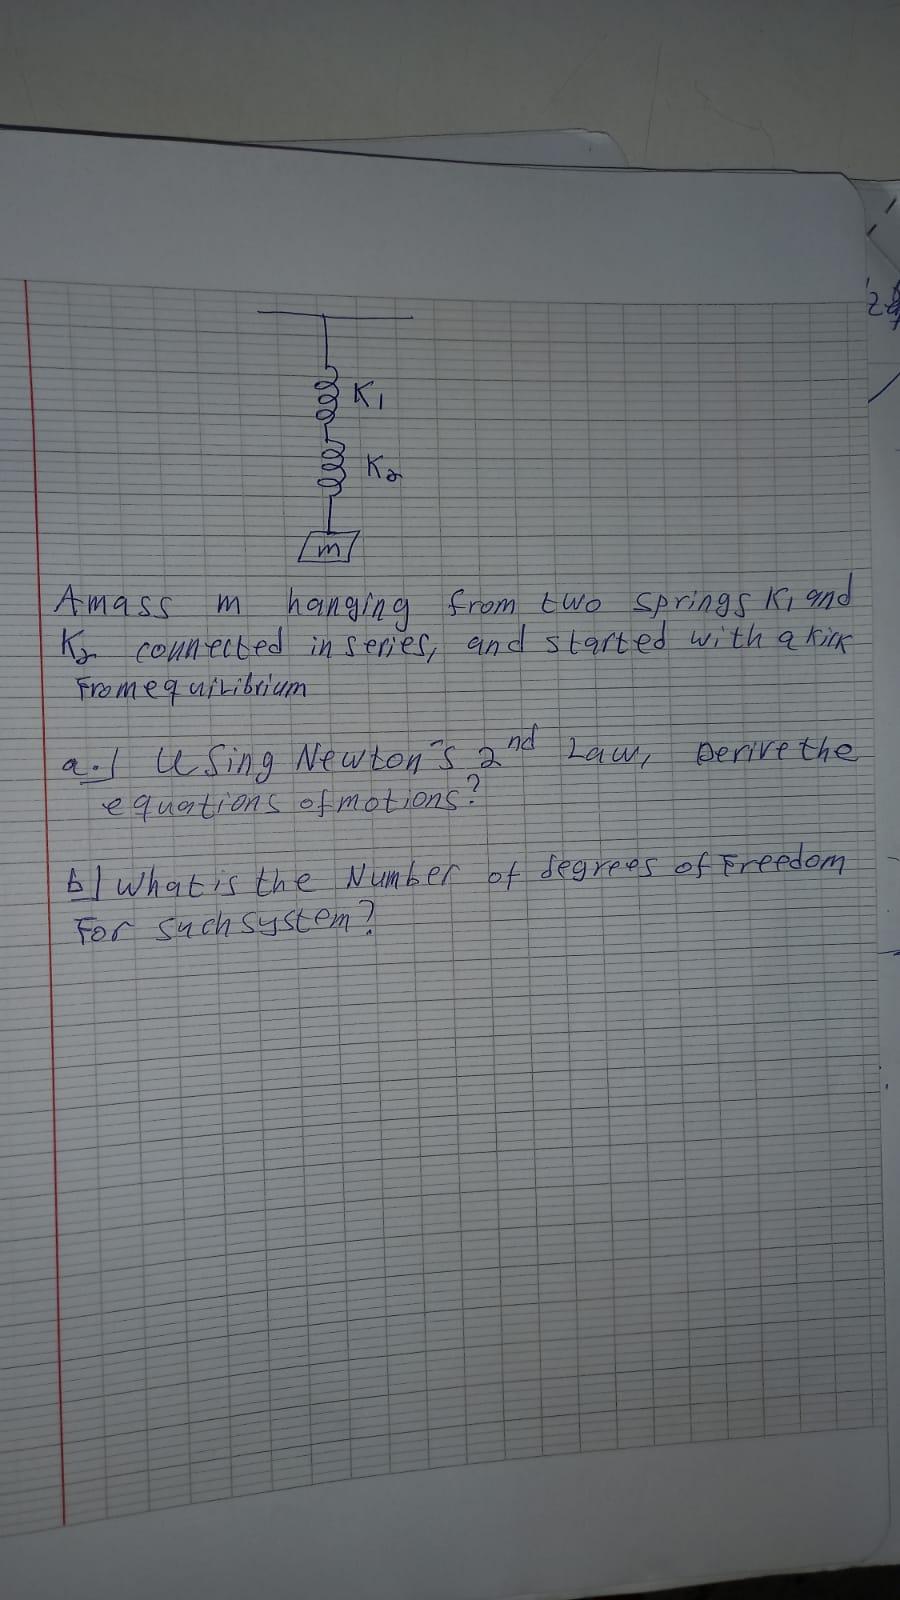 K1
K2
m
A mass m hanging from two springs K1 and
K2 connected in series, and started with a kick
From equilibrium
a.) Using Newton's 2nd Law, Derive the
equations of motions?
b) What is the Number of degrees of Freedom
For such system?